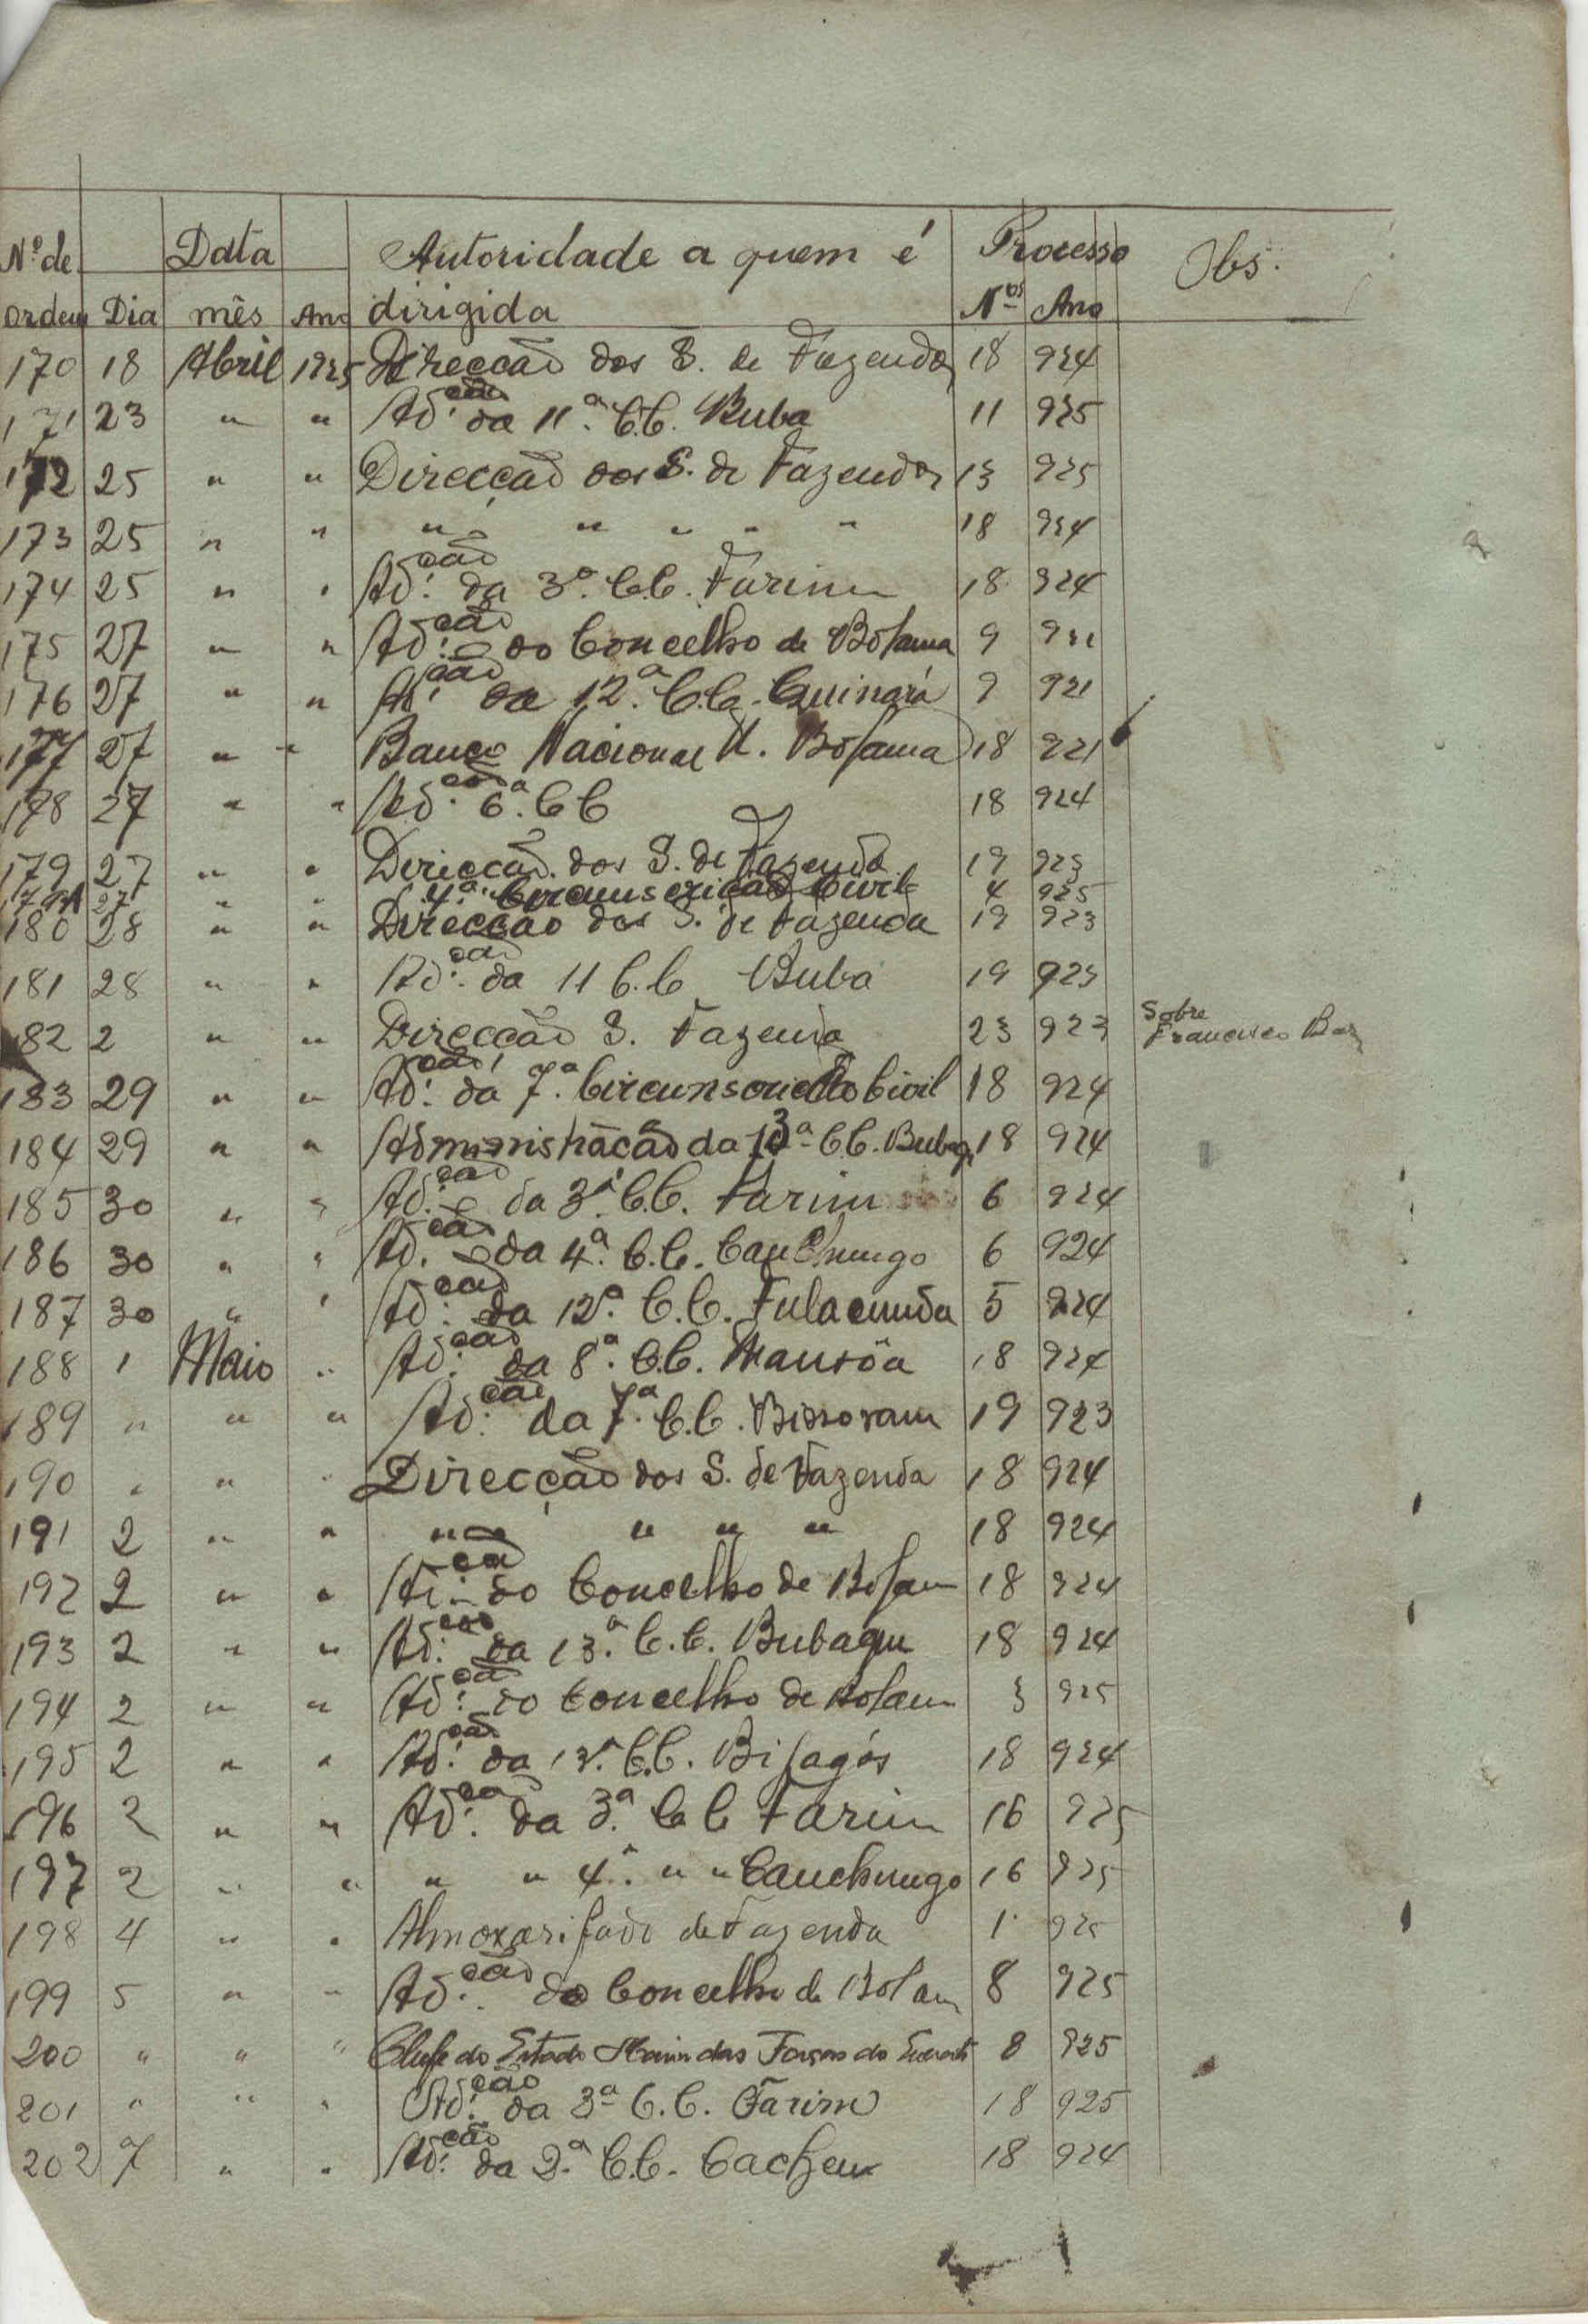 Nº de Data Autoridade a quem é Processo Obs.
Ordem Dia mês Ano dirigida Nos Ano
170 18 Abril 1925 Direcção dos S. de Fazenda 18 924
171 23 " " Ad.ção da 11ª C.C. Buba 11 925
172 25 " " Direcção dos S. de Fazenda 13 925
173 25 " " " " " " " 18 924
174 25 " " Ad.ção da 3ª C.C. Farim 18 924
175 27 " " Ad.ção do Concelho de Bolama 9 921
176 27 " " Ad.ção da 12ª C.C. Quinará 9 921
177 27 " " Banco Nacional U. Bolama 18 921
178 27 " " Ad.ção 6ª C C 18 924
179 27 " " Direcção dos S. de Fazenda 19 923
179A 27 " " 4ª Circunscrição Civil 4 925
180 28 " " Direcção dos S. de Fazenda 19 923
181 28 " " Ad.ção da 11 C.C Buba 19 923
182 2 " " Direcção S. Fazenda 23 923 Sobre Francisco
183 29 " " Ad.ção da 7ª Circunscrição Civil 18 924
184 29 " " Administração da 13ª C.C. Bubaq 18 924
185 30 " " Ad.ção da 3ª C.C. Farim 6 924
186 30 " " Ad.ção da 4ª C.C. Canchungo 6 924
187 30 " " Ad.ção da 12ª C.C. Fulacunda 5 924
188 1 Maio " Ad.ção da 8ª C.C. Mansôa 18 924
189 " " " Ad.ção da 7ª C.C. Bissoram 19 923
190 " " " Direcção dos S. de Fazenda 18 924
191 2 " " " " " " 18 924
192 2 " " Ad.ção do Concelho de Bolam 18 924
193 2 " " Ad.ção da 13ª C.C. Bubaqu 18 924
194 2 " " Ad.ção do Concelho de Bolam 3 925
195 2 " " Ad.ção da 13ª C.C. Bijagós 18 924
196 2 " " Ad.ção da 3ª C C Farim 16 925
197 2 " " " " 4ª " " Canchungo 16 925
198 4 " " Almoxarifado de Fazenda 1 925
199 5 " " Ad.ção do Concelho de Bolam 8 925
200 " " " Chefe do Estado Maior das Forças do Exercito 8 925
201 " " " Ad.ção da 3ª C.C. Farim 18 925
202 7 " " Ad.ção da 2ª C.C. Cacheu 18 924